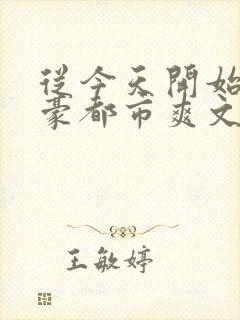 从今天开始
豪都市爽文
王敏婷